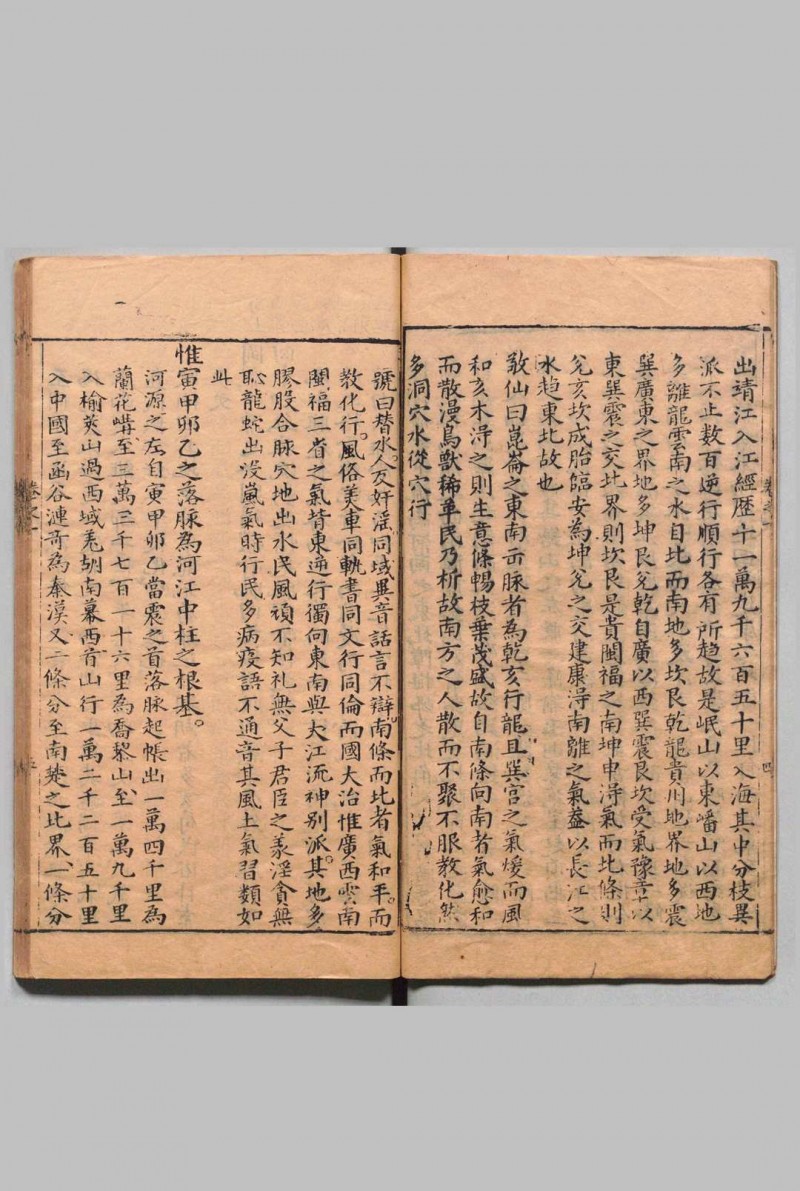 出靖江入江經歷十一萬九千六百五十里入海其中分枝異
派不止数百逆行順行各有所趋故是岷山以東嶓山以西地
多離龍雲南之水自北而南地多坎艮乾龍貴川地界地多震
巽廣東之界地多坤艮兊乾自廣以西巽震艮坎受氣豫章以
東巽震之交北界則坎艮是貴閩福之南坤申淂氣而北條則
兊亥坎成胎臨安為坤兊之交建康淂南離之氣葢以長江之
水趋東北故也
敎仙曰崑崙之東南而脉者為乾亥行龍且巽宮之氣煖而風
和亥木淂之則生意條暢枝葉茂盛故自南條向南者氣愈和
而散漫鳥獸稀革民乃析故南方之人散而不聚不服敎化然
多洞穴水從穴行
號曰朁水人友奸淫同域異音話言不辯南條而北者氣和平。而
敎化行。風俗美車同軌書同文行同倫而國大治惟廣西雲南
閩福三省之氣背東逆行獨向東南與大江流神别派其地多
膠股合脉穴地出水民風頑不知礼無父子君臣之義淫貪無
恥龍蛇出没嵐氣時行民多病疫語不通音其風土氣習類如
此
惟寅甲卯乙之落脉為河江中柱之根基。
河源之左自寅甲卯乙當震之首落脉起帳出一萬四千里為
蘭花嶙至三萬三千七百一十六里為喬黎山至一萬九千里
入榆莢山過西域羌胡南幕西首山行一萬二千二百五十里
入中國至函谷漣奇為秦漠又二條分至南㜑之北界一條分
卷之一
四
卷之一
五